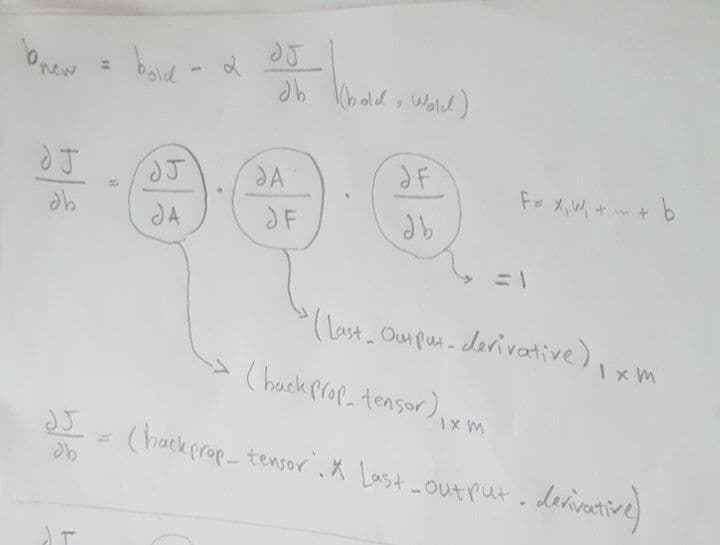 b_new = b_old - α ∂J/∂b |(bold, wold)
∂J/∂b = ∂J/∂A . ∂A/∂F . ∂F/∂b F = x₁w₁ + ... + b
= 1
(Last_Output_derivative)₁ₓₘ
(backprop_tensor)₁ₓₘ
∂J/∂b = (backprop_tensor .* Last_output_derivative)
∂J